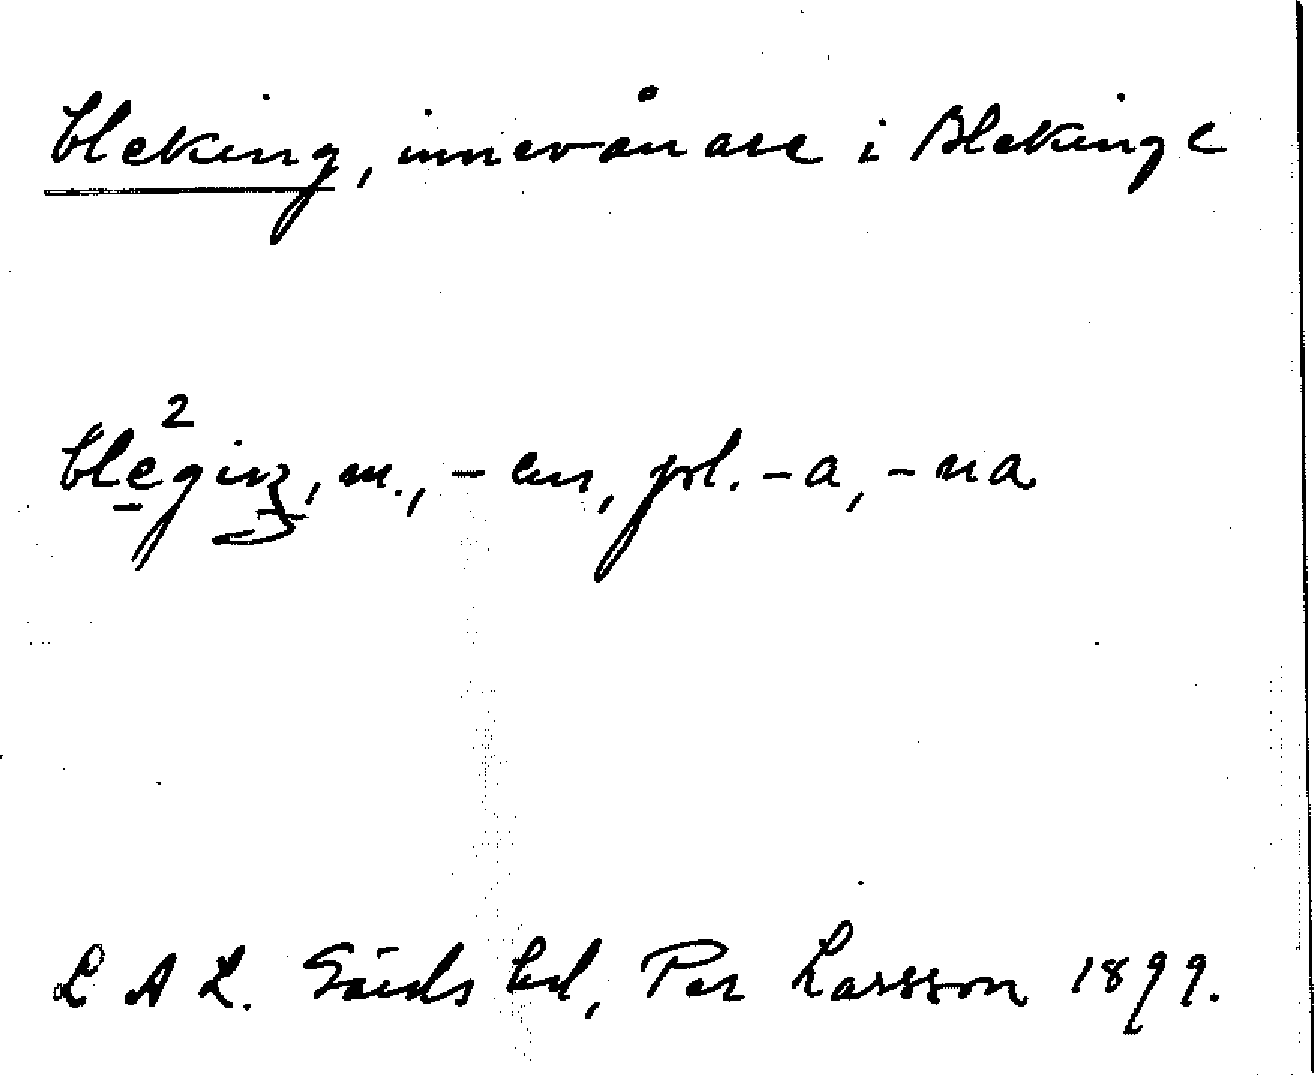 bleking, innevånare i Blekinge
ble̠²giŋ, m., -en, pl. -a, -na
L A L. Gärds hd, Per Larsson 1899.